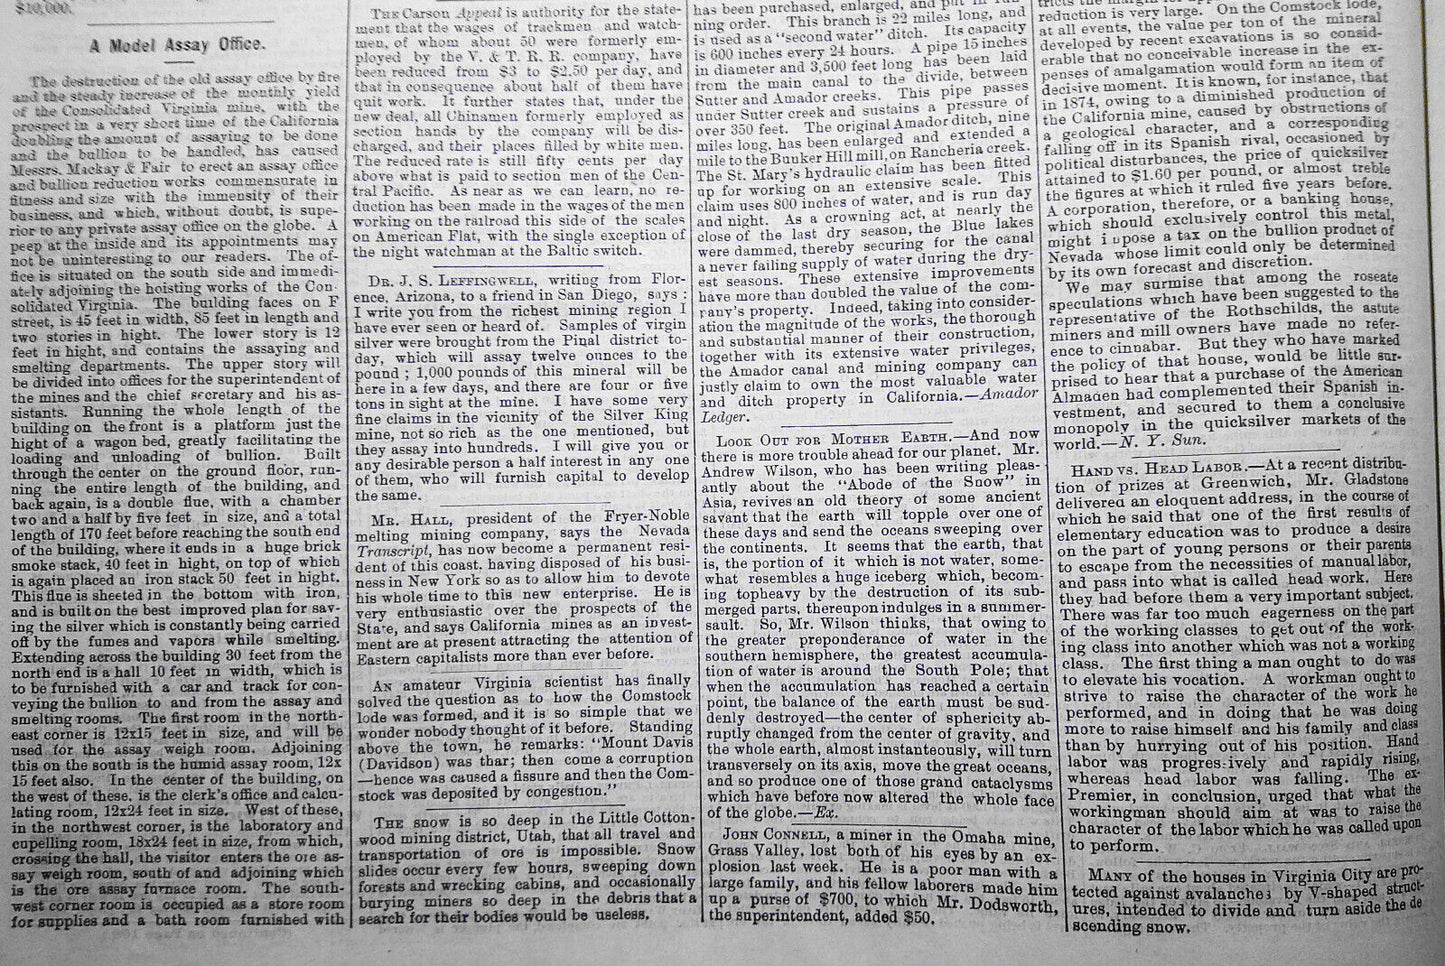 $10,000.
A Model Assay Office.
The destruction of the old assay office by fire
and the steady increase of the monthly yield
of the Consolidated Virginia mine, with the
prospect in a very short time of the California
doubling the amount of assaying to be done
and the bullion to be handled, has caused
Messrs. Mackay & Fair to erect an assay office
and bullion reduction works commensurate in
fitness and size with the immensity of their
business, and which, without doubt, is supe-
rior to any private assay office on the globe. A
peep at the inside and its appointments may
not be uninteresting to our readers. The of-
fice is situated on the south side and immedi-
ately adjoining the hoisting works of the Con-
solidated Virginia. The building faces on F
street, is 45 feet in width, 85 feet in length and
two stories in hight. The lower story is 12
feet in hight, and contains the assaying and
smelting departments. The upper story will
be divided into offices for the superintendent of
the mines and the chief secretary and his as-
sistants. Running the whole length of the
building on the front is a platform just the
hight of a wagon bed, greatly facilitating the
loading and unloading of bullion. Built
through the center on the ground floor, run-
ning the entire length of the building, and
back again, is a double flue, with a chamber
two and a half by five feet in size, and a total
length of 170 feet before reaching the south end
of the building, where it ends in a huge brick
smoke stack, 40 feet in hight, on top of which
is again placed an iron stack 50 feet in hight.
This flue is sheeted in the bottom with iron,
and is built on the best improved plan for sav-
ing the silver which is constantly being carried
off by the fumes and vapors while smelting.
Extending across the building 30 feet from the
north end is a hall 10 feet in width, which is
to be furnished with a car and track for con-
veying the bullion to and from the assay and
smelting rooms. The first room in the north-
east corner is 12x15 feet in size, and will be
used for the assay weigh room. Adjoining
this on the south is the humid assay room, 12x
15 feet also. In the center of the building, on
the west of these, is the clerk's office and calcu-
lating room, 12x24 feet in size. West of these,
in the northwest corner, is the laboratory and
cupelling room, 18x24 feet in size, from which,
crossing the hall, the visitor enters the ore as-
say weigh room, south of and adjoining which
is the ore assay furnace room. The south-
west corner room is occupied as a store room
for supplies and a bath room furnished with
THE Carson Appeal is authority for the state-
ment that the wages of trackmen and watch-
men, of whom about 50 were formerly em-
ployed by the V. & T. R. R. company, have
been reduced from $3 to $2.50 per day, and
that in consequence about half of them have
quit work. It further states that, under the
new deal, all Chinamen formerly employed as
section hands by the company will be dis-
charged, and their places filled by white men.
The reduced rate is still fifty cents per day
above what is paid to section men of the Cen-
tral Pacific. As near as we can learn, no re-
duction has been made in the wages of the men
working on the railroad this side of the scales
on American Flat, with the single exception of
the night watchman at the Baltic switch.
DR. J. S. LEFFINGWELL, writing from Flor-
ence, Arizona, to a friend in San Diego, says:
I write you from the richest mining region I
have ever seen or heard of. Samples of virgin
silver were brought from the Pinal district to-
day, which will assay twelve ounces to the
pound; 1,000 pounds of this mineral will be
here in a few days, and there are four or five
tons in sight at the mine. I have some very
fine claims in the vicinity of the Silver King
mine, not so rich as the one mentioned, but
they assay into hundreds. I will give you or
any desirable person a half interest in any one
of them, who will furnish capital to develop
the same.
MR. HALL, president of the Fryer-Noble
melting mining company, says the Nevada
Transcript, has now become a permanent resi-
dent of this coast, having disposed of his busi-
ness in New York so as to allow him to devote
his whole time to this new enterprise. He is
very enthusiastic over the prospects of the
State, and says California mines as an invest-
ment are at present attracting the attention of
Eastern capitalists more than ever before.
AN amateur Virginia scientist has finally
solved the question as to how the Comstock
lode was formed, and it is so simple that we
wonder nobody thought of it before. Standing
above the town, he remarks: "Mount Davis
(Davidson) was thar; then come a corruption
—hence was caused a fissure and then the Com-
stock was deposited by congestion."
THE snow is so deep in the Little Cotton-
wood mining district, Utah, that all travel and
transportation of ore is impossible. Snow
slides occur every few hours, sweeping down
forests and wrecking cabins, and occasionally
burying miners so deep in the debris that a
search for their bodies would be useless.
has been purchased, enlarged, and put in run-
ning order. This branch is 22 miles long, and
is used as a "second water" ditch. Its capacity
is 600 inches every 24 hours. A pipe 15 inches
in diameter and 3,500 feet long has been laid
from the main canal to the divide, between
Sutter and Amador creeks. This pipe passes
under Sutter creek and sustains a pressure of
over 350 feet. The original Amador ditch, nine
miles long, has been enlarged and extended a
mile to the Bunker Hill mill, on Rancheria creek.
The St. Mary's hydraulic claim has been fitted
up for working on an extensive scale. This
claim uses 800 inches of water, and is run day
and night. As a crowning act, at nearly the
close of the last dry season, the Blue lakes
were dammed, thereby securing for the canal
a never failing supply of water during the dry-
est seasons. These extensive improvements
have more than doubled the value of the com-
pany's property. Indeed, taking into consider-
ation the magnitude of the works, the thorough
and substantial manner of their construction,
together with its extensive water privileges,
the Amador canal and mining company can
justly claim to own the most valuable water
and ditch property in California.—Amador
Ledger.
LOOK OUT FOR MOTHER EARTH.—And now
there is more trouble ahead for our planet. Mr.
Andrew Wilson, who has been writing pleas-
antly about the "Abode of the Snow" in
Asia, revives an old theory of some ancient
savant that the earth will topple over one of
these days and send the oceans sweeping over
the continents. It seems that the earth, that
is, the portion of it which is not water, some-
what resembles a huge iceberg which, becom-
ing topheavy by the destruction of its sub-
merged parts, thereupon indulges in a summer-
sault. So, Mr. Wilson thinks, that owing to
the greater preponderance of water in the
southern hemisphere, the greatest accumula-
tion of water is around the South Pole; that
when the accumulation has reached a certain
point, the balance of the earth must be sud-
denly destroyed—the center of sphericity ab-
ruptly changed from the center of gravity, and
the whole earth, almost instanteously, will turn
transversely on its axis, move the great oceans,
and so produce one of those grand cataclysms
which have before now altered the whole face
of the globe.—Ex.
JOHN CONNELL, a miner in the Omaha mine,
Grass Valley, lost both of his eyes by an ex-
plosion last week. He is a poor man with a
large family, and his fellow laborers made him
up a purse of $700, to which Mr. Dodsworth,
the superintendent, added $50.
reduction is very large. On the Comstock lode,
at all events, the value per ton of the mineral
developed by recent excavations is so consid-
erable that no conceivable increase in the ex-
penses of amalgamation would form an item of
decisive moment. It is known, for instance, that
in 1874, owing to a diminished production of
the California mine, caused by obstructions of
a geological character, and a corresponding
falling off in its Spanish rival, occasioned by
political disturbances, the price of quicksilver
attained to $1.60 per pound, or almost treble
the figures at which it ruled five years before.
A corporation, therefore, or a banking house,
which should exclusively control this metal,
might i upose a tax on the bullion product of
Nevada whose limit could only be determined
by its own forecast and discretion.
We may surmise that among the roseate
speculations which have been suggested to the
representative of the Rothschilds, the astute
miners and mill owners have made no refer-
ence to cinnabar. But they who have marked
the policy of that house, would be little sur-
prised to hear that a purchase of the American
Almaden had complemented their Spanish in-
vestment, and secured to them a conclusive
monopoly in the quicksilver markets of the
world.—N. Y. Sun.
HAND VS. HEAD LABOR.—At a recent distribu-
tion of prizes at Greenwich, Mr. Gladstone
delivered an eloquent address, in the course of
which he said that one of the first results of
elementary education was to produce a desire
on the part of young persons or their parents
to escape from the necessities of manual labor,
and pass into what is called head work. Here
they had before them a very important subject.
There was far too much eagerness on the part
of the working classes to get out of the work-
ing class into another which was not a working
class. The first thing a man ought to do was
to elevate his vocation. A workman ought to
strive to raise the character of the work he
performed, and in doing that he was doing
more to raise himself and his family and class
than by hurrying out of his position. Hand
labor was progressively and rapidly rising,
whereas head labor was falling. The ex-
Premier, in conclusion, urged that what the
workingman should aim at was to raise the
character of the labor which he was called upon
to perform.
MANY of the houses in Virginia City are pro-
tected against avalanches by V-shaped struct-
ures, intended to divide and turn aside the de
scending snow.